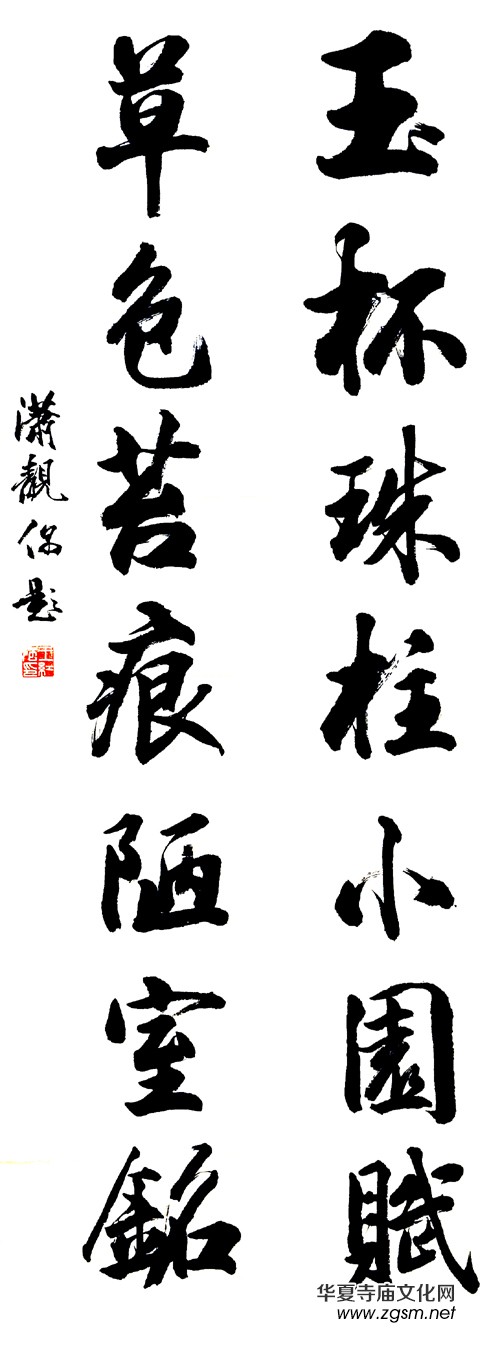 玉杯珠柱小園賦
草色苔痕陋室銘
瀟靚偶題
华夏寺庙文化网
www.zgsm.net